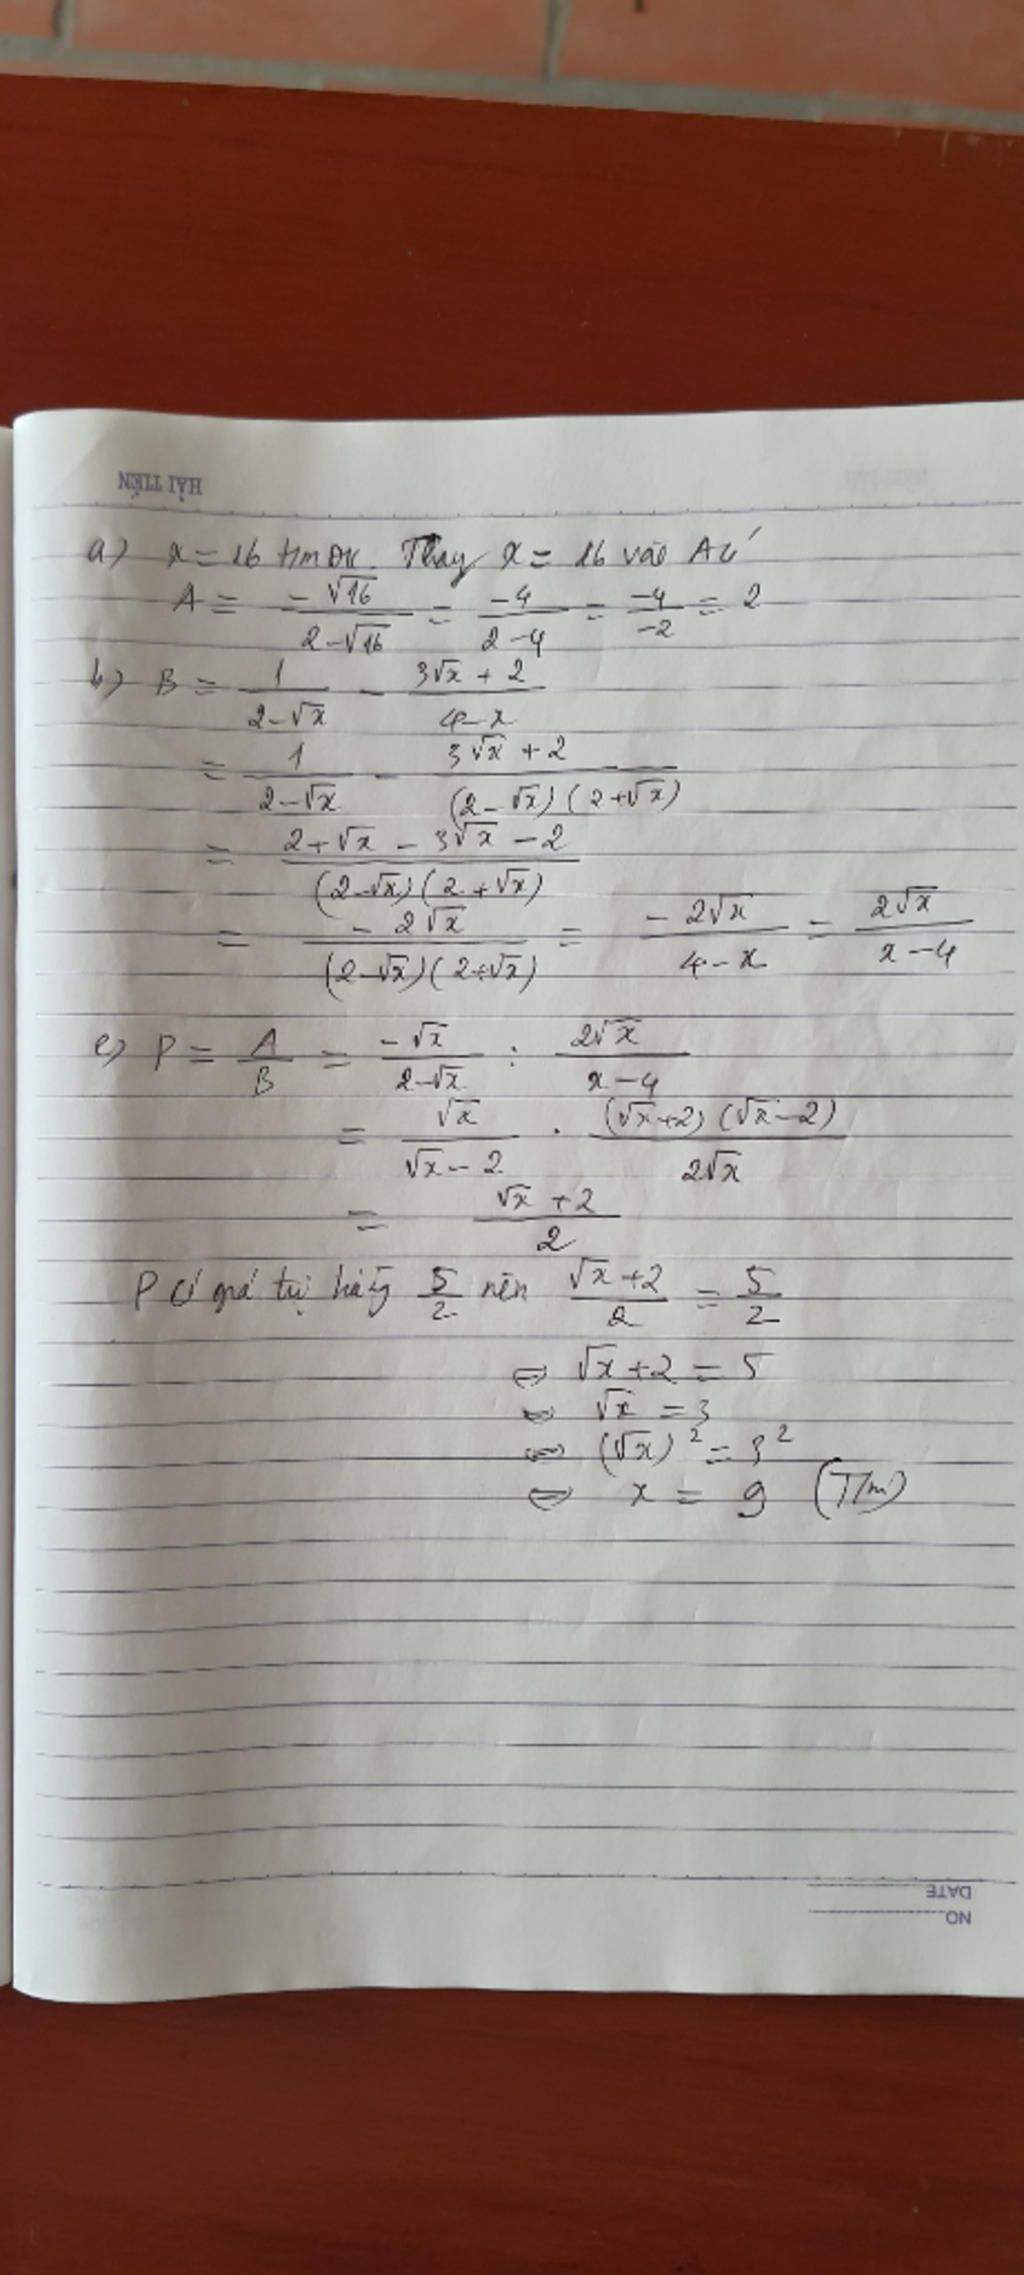 HẢI TIẾN
a) x = 16 tmĐK. Thay x = 16 vào A có
A = -√16 / (2-√16) = -4 / (2-4) = -4 / -2 = 2
b) B = 1 / (2-√x) - (3√x + 2) / (4-x)
= 1 / (2-√x) - (3√x + 2) / ((2-√x)(2+√x))
= (2+√x - 3√x - 2) / ((2-√x)(2+√x))
= -2√x / ((2-√x)(2+√x)) = -2√x / (4-x) = 2√x / (x-4)
c) P = A / B = -√x / (2-√x) : 2√x / (x-4)
= √x / (√x-2) . (√x+2)(√x-2) / 2√x
= (√x+2) / 2
P có giá trị bằng 5/2 nên (√x+2) / 2 = 5 / 2
⇔ √x+2 = 5
⇔ √x = 3
⇔ (√x)² = 3²
⇔ x = 9 (T/m)
DATE
NO